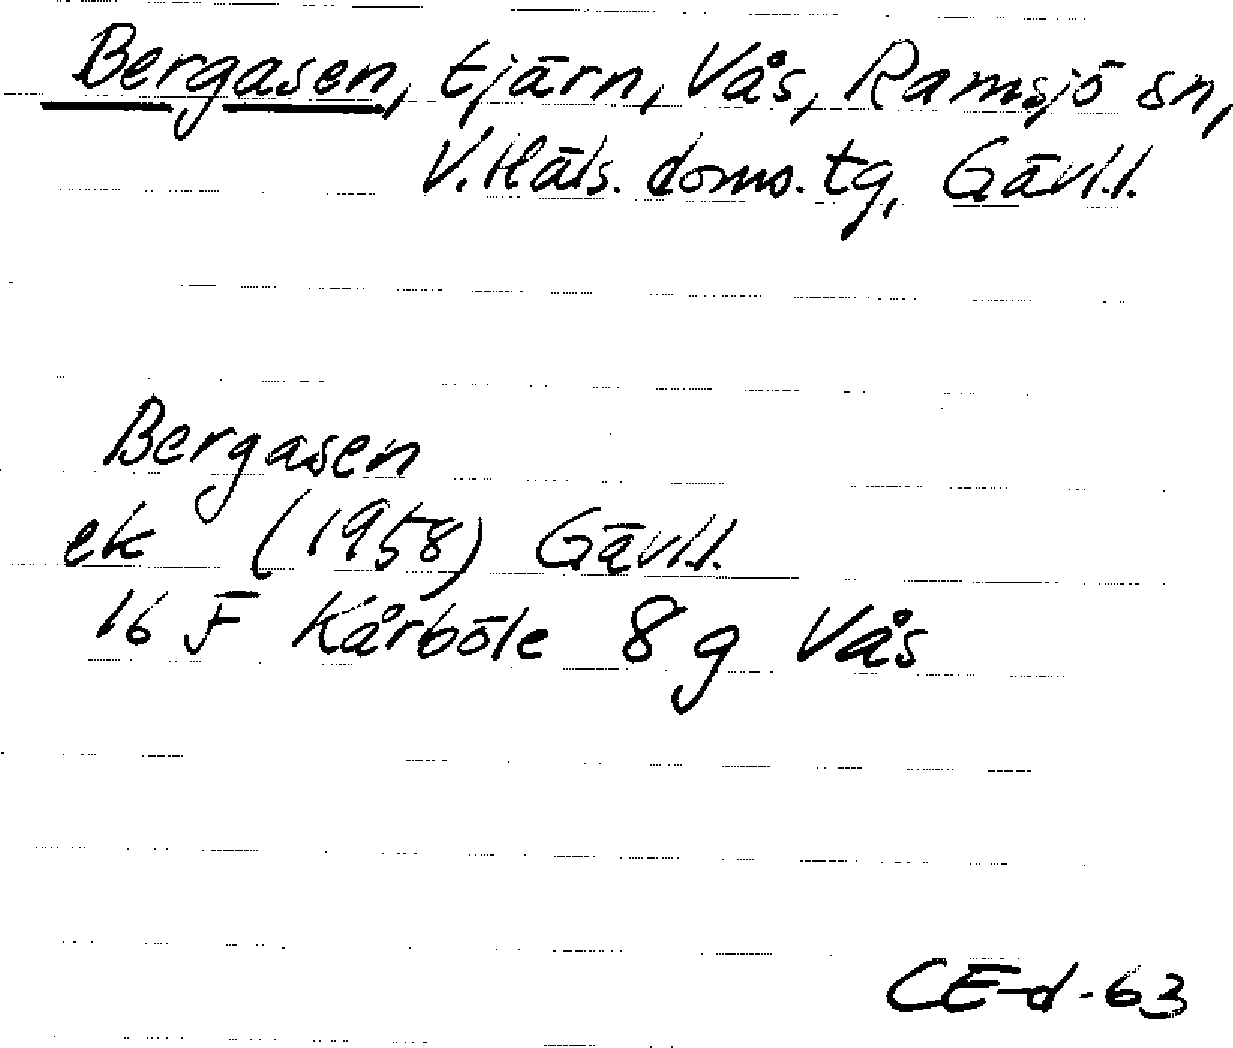 Bergasen, tjärn, Vås, Ramsjö sn,
V. Häls. doms. tg, Gävl.l.
Bergasen
ek (1958) Gävl.l.
16 F Kårböle 8 g Vås
CE-d-63